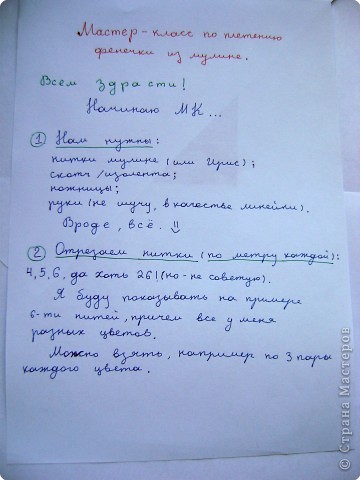 Мастер-класс по плетению
фенечки из мулине.
Всем здрасти!
Начинаю МК...
1 Нам нужны:
нитки мулине (или Ирис);
скотч/изолента;
ножницы;
руки (не шучу, в качестве линейки).
Вроде, всё. =)
2 Отрезаем нитки (по метру каждой):
4,5,6, да хоть 26! (но - не советую).
Я буду показывать на примере
6-ти нитей, причем все у меня
разных цветов.
Можно взять, например по 3 пары
каждого цвета.
© Страна Мастеров